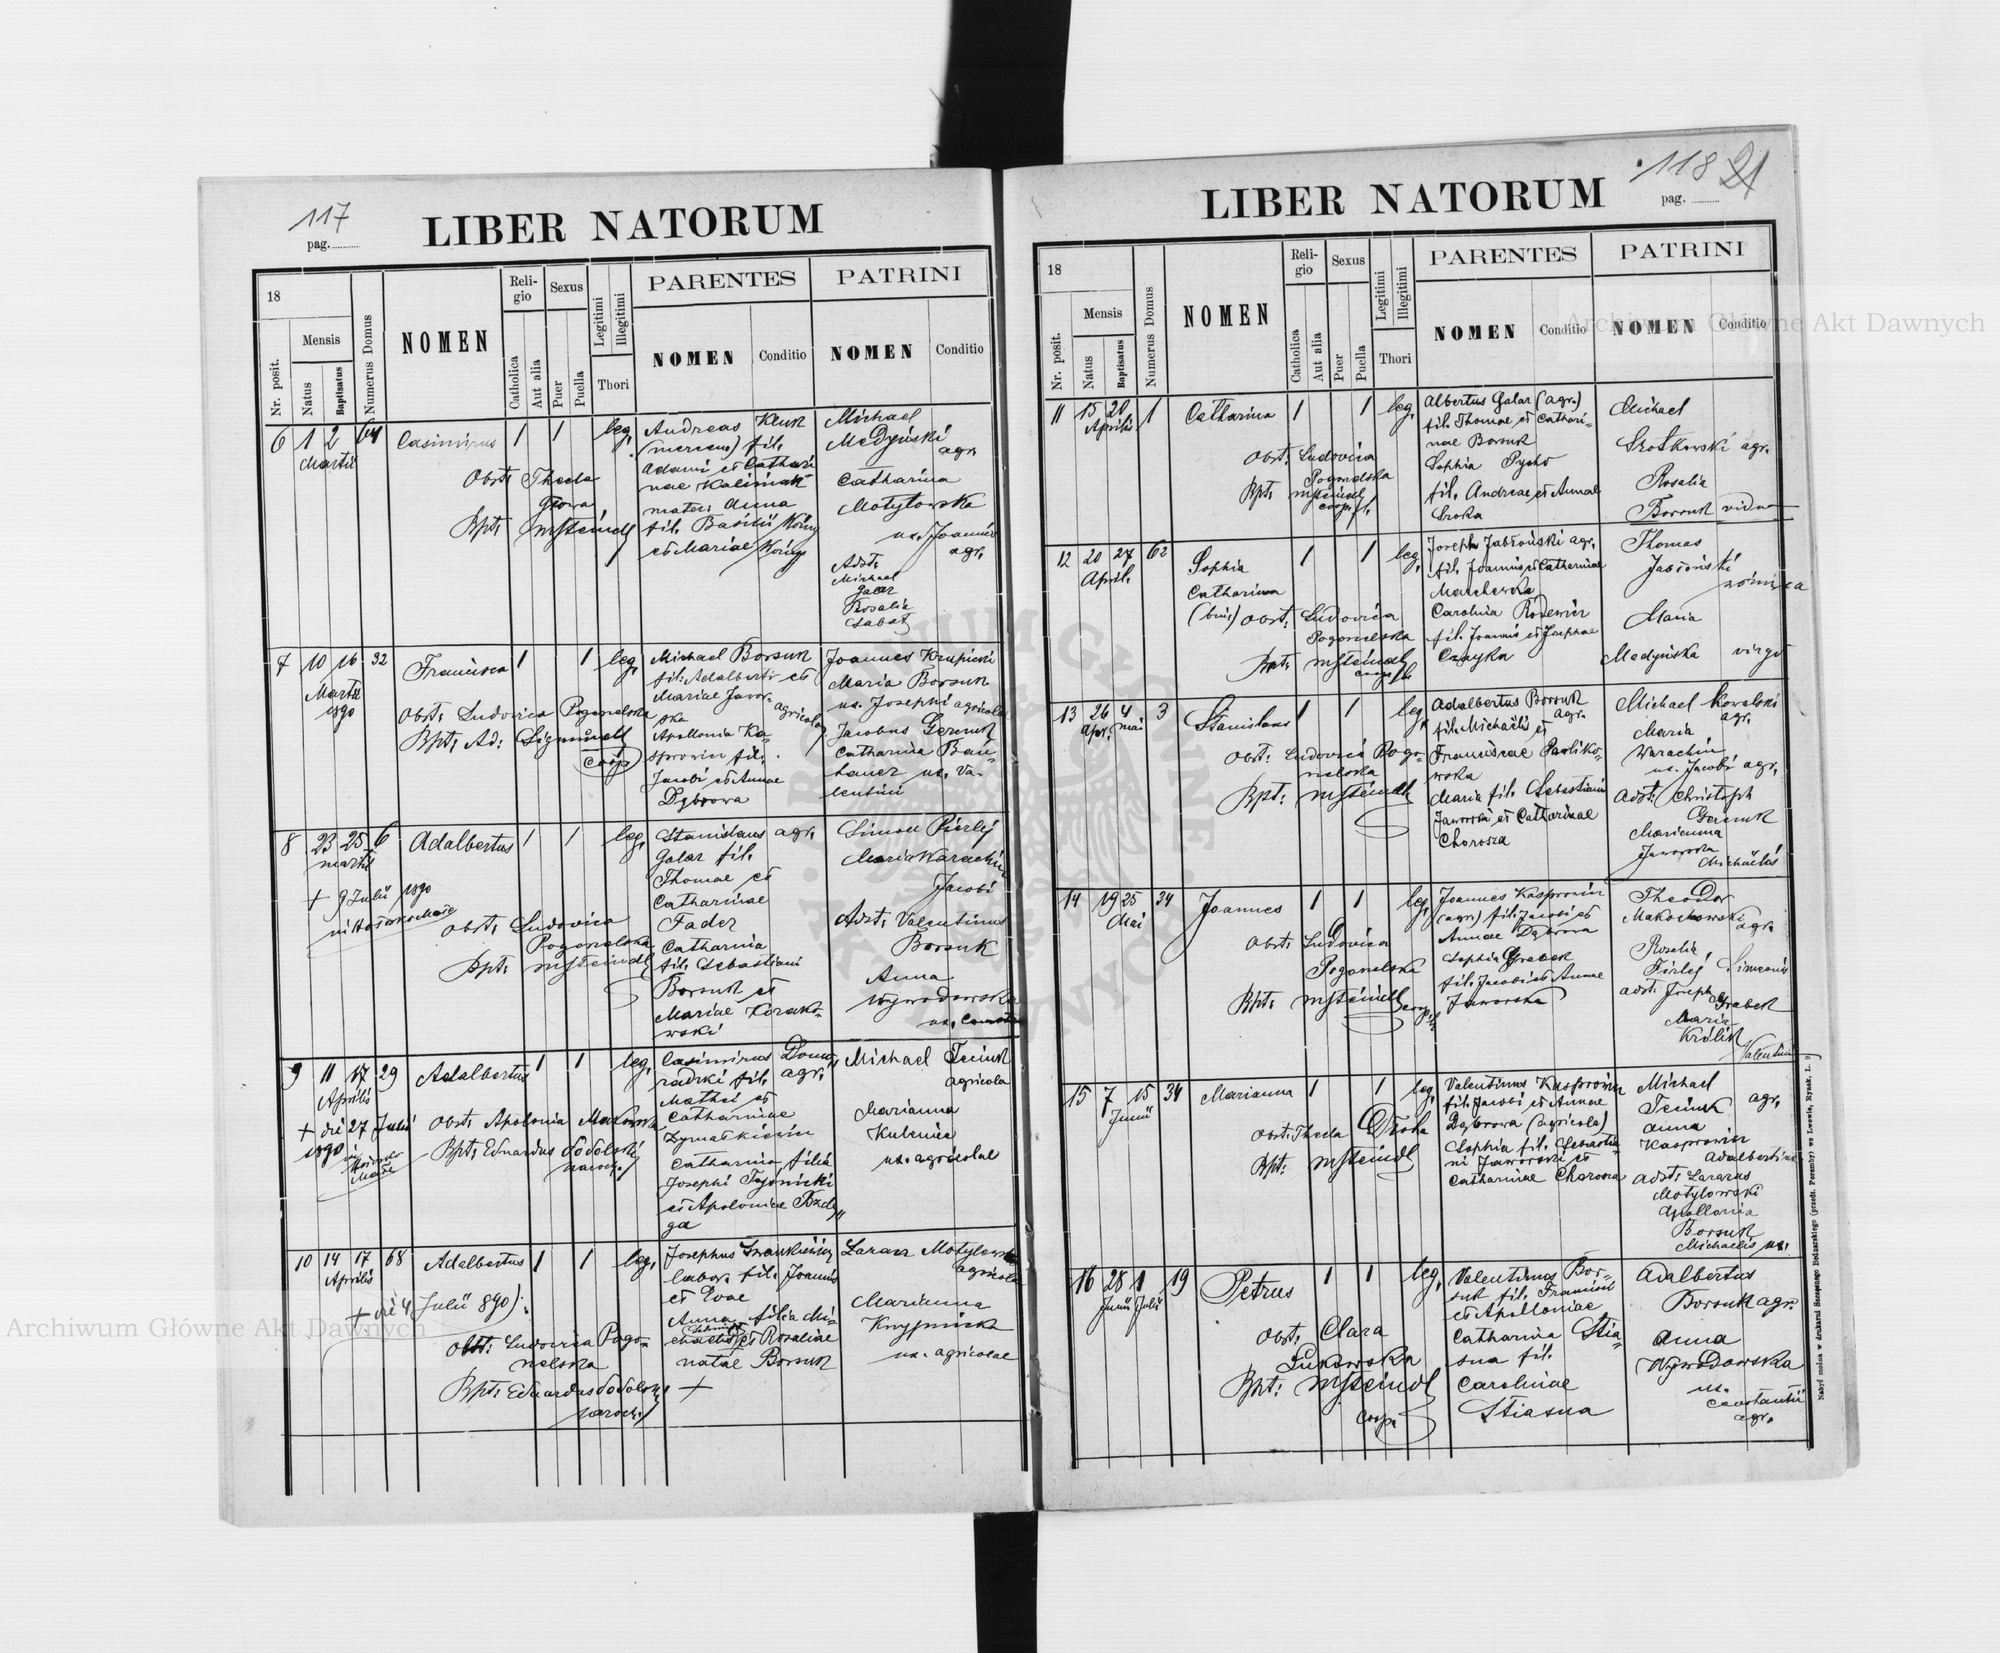 117
pag.
LIBER NATORUM
18
Nr. posit.
Mensis
Natus
Baptisatus
Numerus Domus
NOMEN
Religio
Catholica
Aut alia
Sexus
Puer
Puella
Legitimi
Illegitimi
Thori
PARENTES
NOMEN
Conditio
PATRINI
NOMEN
Conditio
6 1 2 64 Casimirus 1 1 leg.
Martii
Obst: Thecla
Głowa
Bpt: MSteindl
Andreas Kluk
(mercen) fil.
Adami et Cathari
nae Kaliniak
mater: Anna
fil. Basilii
et Mariae
Michael
Medyński
agr.
Catharina
Motylowska
ux. Joannis
agr.
Adst:
Michael
Galar
Rosalia
7 10 16 32 Francisca 1 1 leg.
Martii
1890
Obst: Ludovica Pogonelska
Bpt: Ad:
coop
Michael Borsuk
fil: Adalberti et
Mariae Jawor-
ska
agricola
Apollonia Ka-
sprowin fil.
Jacobi et Annae
Dąbrowa
Joannes Krupicki
Maria Borsuk
ux. Josephi agricola
Jacobus Gerenuk
Catharina
ux. Va-
lentini
8 23 25 6 Adalbertus 1 1 leg.
Martii
+ 9 Julii 1890
Obst: Ludovica
Pogonelska
Bpt: MSteindl
Stanislaus agr.
Galar fil.
Thomae et
Catharinae
Fader
Catharina
fil. Sebastiani
Borsuk et
Mariae
Simon Pierlej
Maria Karachin
Jacobi
Adst: Valentinus
Borsuk
Anna
Wywodowska
ux.
9 11 17 29 Adalbertus 1 1 leg.
Aprilis
+ die 27 Julii
1890
Obst: Apolonia
Bpt: Eduardus Podolski
paroch.
Casimirus Dom-
radzki fil. agr.
Mathei et
Catharinae
Catharina filia
Josephi
et Apoloniae
Michael Teciuk
agricola
Marianna
ux. agricolae
10 14 17 68 Adalbertus 1 1 leg.
Aprilis
+ die 4 Julii 890
Obst: Ludovica Pogo-
nelska
Bpt: Eduardus Podolski
paroch.
Josephus
labor. fil. Joannis
et Evae
Anna filia Mi-
chaelis et Rosaliae
natae Borsuk
Lazarz Motylewski
agricola
Marianna
ux. agricolae
118 21
pag.
LIBER NATORUM
18
Nr. posit.
Mensis
Natus
Baptisatus
Numerus Domus
NOMEN
Religio
Catholica
Aut alia
Sexus
Puer
Puella
Legitimi
Illegitimi
Thori
PARENTES
NOMEN
Conditio
PATRINI
NOMEN
Conditio
11 15 20 1 Catharina 1 1 leg.
Aprilis
Obst: Ludovica
Pogonelska
Bpt: MSteindl
coop.
Albertus Galar (agr.)
fil. Thomae et Cathari-
nae Borsuk
Sophia
fil. Andreae et Annae
Sroka
Michael
Srotkowski agr.
Rosalia
Borsuk vidua
12 20 27 62 Sophia 1 1 leg.
April.
Catharina
(bin.) Obst: Ludovica
Pogonelska
Bpt: MSteindl
coop.
Joseph Jabłoński agr.
fil. Joannis et Catharinae
Carolina
fil. Joannis et Josephae
Czayka
Thomas
Jabłoński
Maria
Medyńska virgo
13 26 4 3 Stanislaus 1 1 leg.
Apr. Mai
Obst: Ludovica Pogo-
nelska
Bpt: MSteindl
Adalbertus Borsuk
agr.
fil. Michaelis et
Franciscae Pawliko-
wska
Maria fil. Sebastiani
Jaworski et Catharinae
Chorosza
Michael Kowalski
agr.
Maria
Warachin
ux. Jacobi agr.
Adst: Christoph
Gerenuk
Marianna
Jaworska
Michaelis
14 19 25 34 Joannes 1 1 leg.
Mai
Obst: Ludovica
Pogonelska
Bpt: MSteindl
coop.
Joannes Kasprowin
(agr.) fil. Jacobi et
Annae Dąbrowa
Sophia Grabek
fil. Jacobi et Annae
Jaworska
Theodor
Makochowski
agr.
Rosalia
Simeonis
Adst: Joseph
Grabek
Maria
Królik
Valentini
15 7 15 34 Marianna 1 1 leg.
Junii
Obst: Thecla
Bpt: MSteindl
Valentinus Kasprowin
fil. Jacobi et Annae
Dąbrowa (agricola)
Sophia fil. Sebastia-
ni Jaworski et
Catharinae Chorosza
Michael
Teciuk agr.
Anna
Kasprowin
Adalberti
Adst: Lazarus
Motylowski
Apollonia
Borsuk
Michaelis ux.
16 28 1 19 Petrus 1 1 leg.
Junii Julii
Obst: Clara
Łukowska
Bpt: MSteindl
coop.
Valentinus Bor-
suk fil. Francisci
et Apolloniae
Catharina Stia-
sna fil.
Carolinae
Stiasna
Adalbertus
Borsuk agr.
Anna
Wywodowska
ux.
Constantii
agr.
Nabyć można w drukarni Szczęsnego Bednarskiego (przedt. Poremby) we Lwowie, Rynek, L. 9
Archiwum Główne Akt Dawnych
Archiwum Główne Akt Dawnych